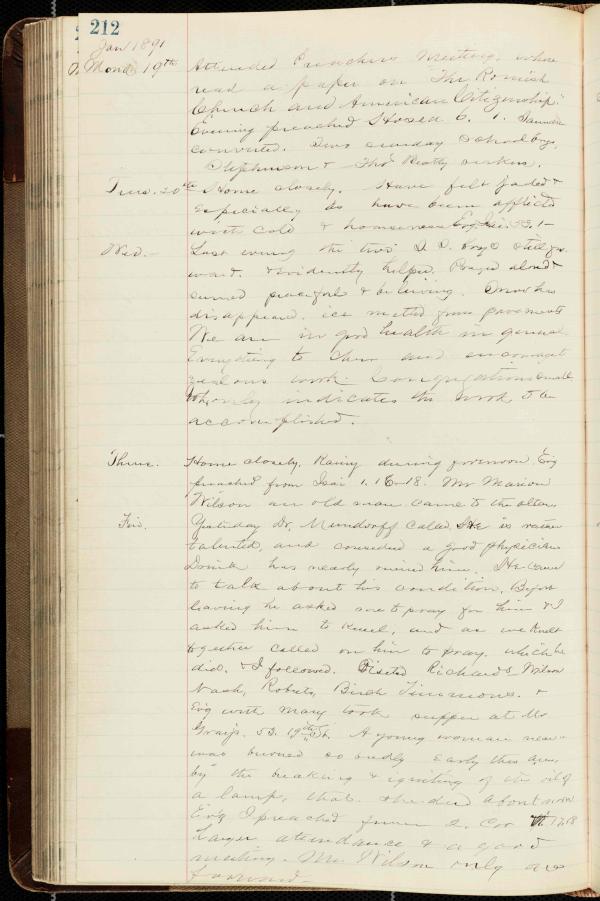 212
Jan 1891
Mond 19th Attended Preachers Meeting, where
read a paper on "The Romish
Church and American Citizenship."
Evening preached Hosea 6. 1.
converted. Two sunday school boys,
Stephenson & Thos Beatty seekers.
Tues. 20th Home closely. Have felt jaded &
especially as have been afflicted
with cold & hoarseness Evg Isai. 55. 1-
Wed. - Last evening the two S. S. boys still for-
ward. & evidently helped. Prayed aloud &
seemed peaceful & believing. Snow has
disappeared. ice melted from pavements
We are in good health in general
Everything to cheer and encourage
zealous work. Congregations small
only indicates the work to be
accomplished.
Thurs. Home closely. Rainy during forenoon. Evg
preached from Isai 1. 16-18. Mr Marion
Wilson an old man came to the altar.
Fri. Yesterday Dr. Mundorff called. He is rather
talented, and considered a good physician
Drink has nearly ruined him. He came
to talk about his condition. Before
leaving he asked me to pray for him & I
asked him to kneel, and as we knelt
together called on him to pray, which he
did. & I followed. Visited Richards Wilson
Nash, Roberts, Birch Timmons. &
Evg with Mary took supper at Mr
53. 19th St. A young woman near
was burned so badly early this
by the breaking & igniting of the oil of
a lamp, that she died about noon
Evg I preached from 2. Cor 17.18
Larger attendance & a good
meeting. Mr. Wilson only one
forward.